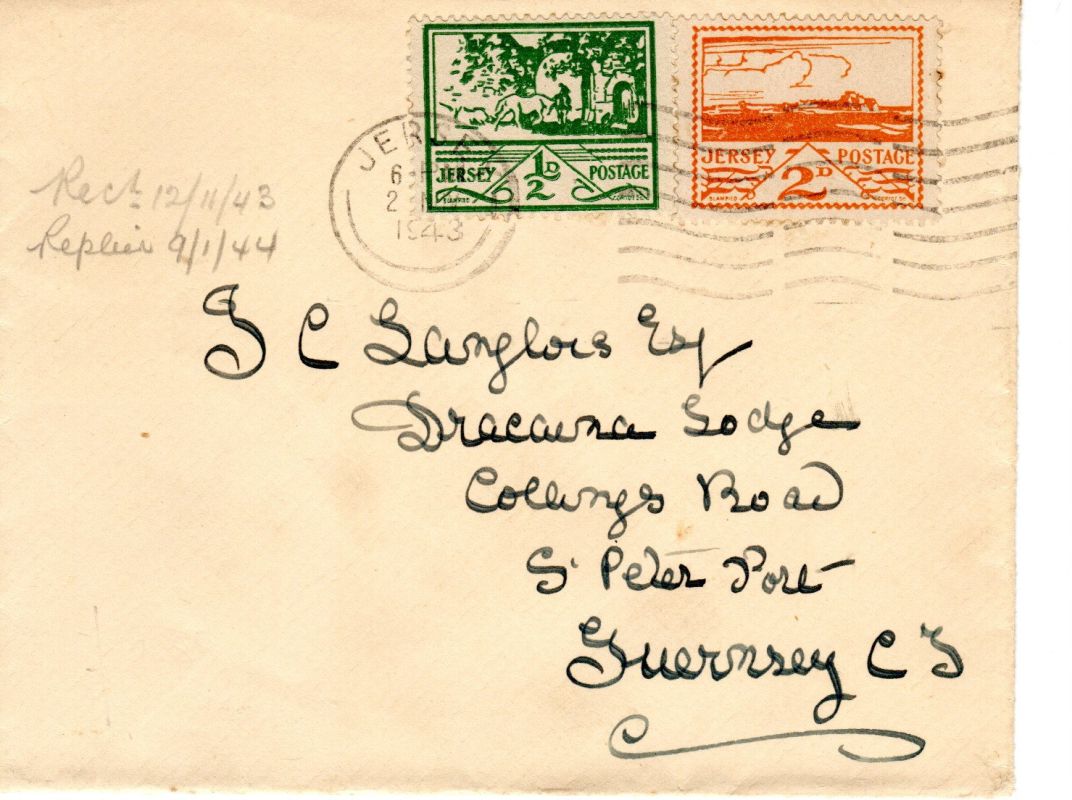 JERSEY
6
2
1943
JERSEY 1/2D POSTAGE
BLAMPIED
JERSEY 2D POSTAGE
BLAMPIED
Rec't 12/11/43
Replied 9/1/44
J C Langlois Esq
Dracaena Lodge
Collings Road
St Peter Port
Guernsey C I